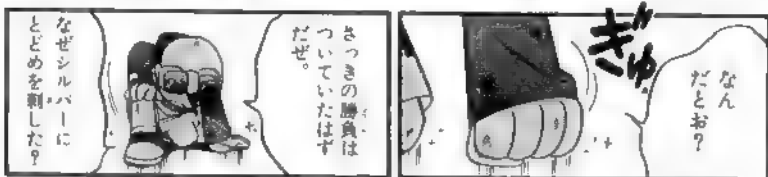 なん
だとお？
ぎゅ
さっきの勝負は
ついていたはず
だぜ。
なぜシルバーに
とどめを刺した？